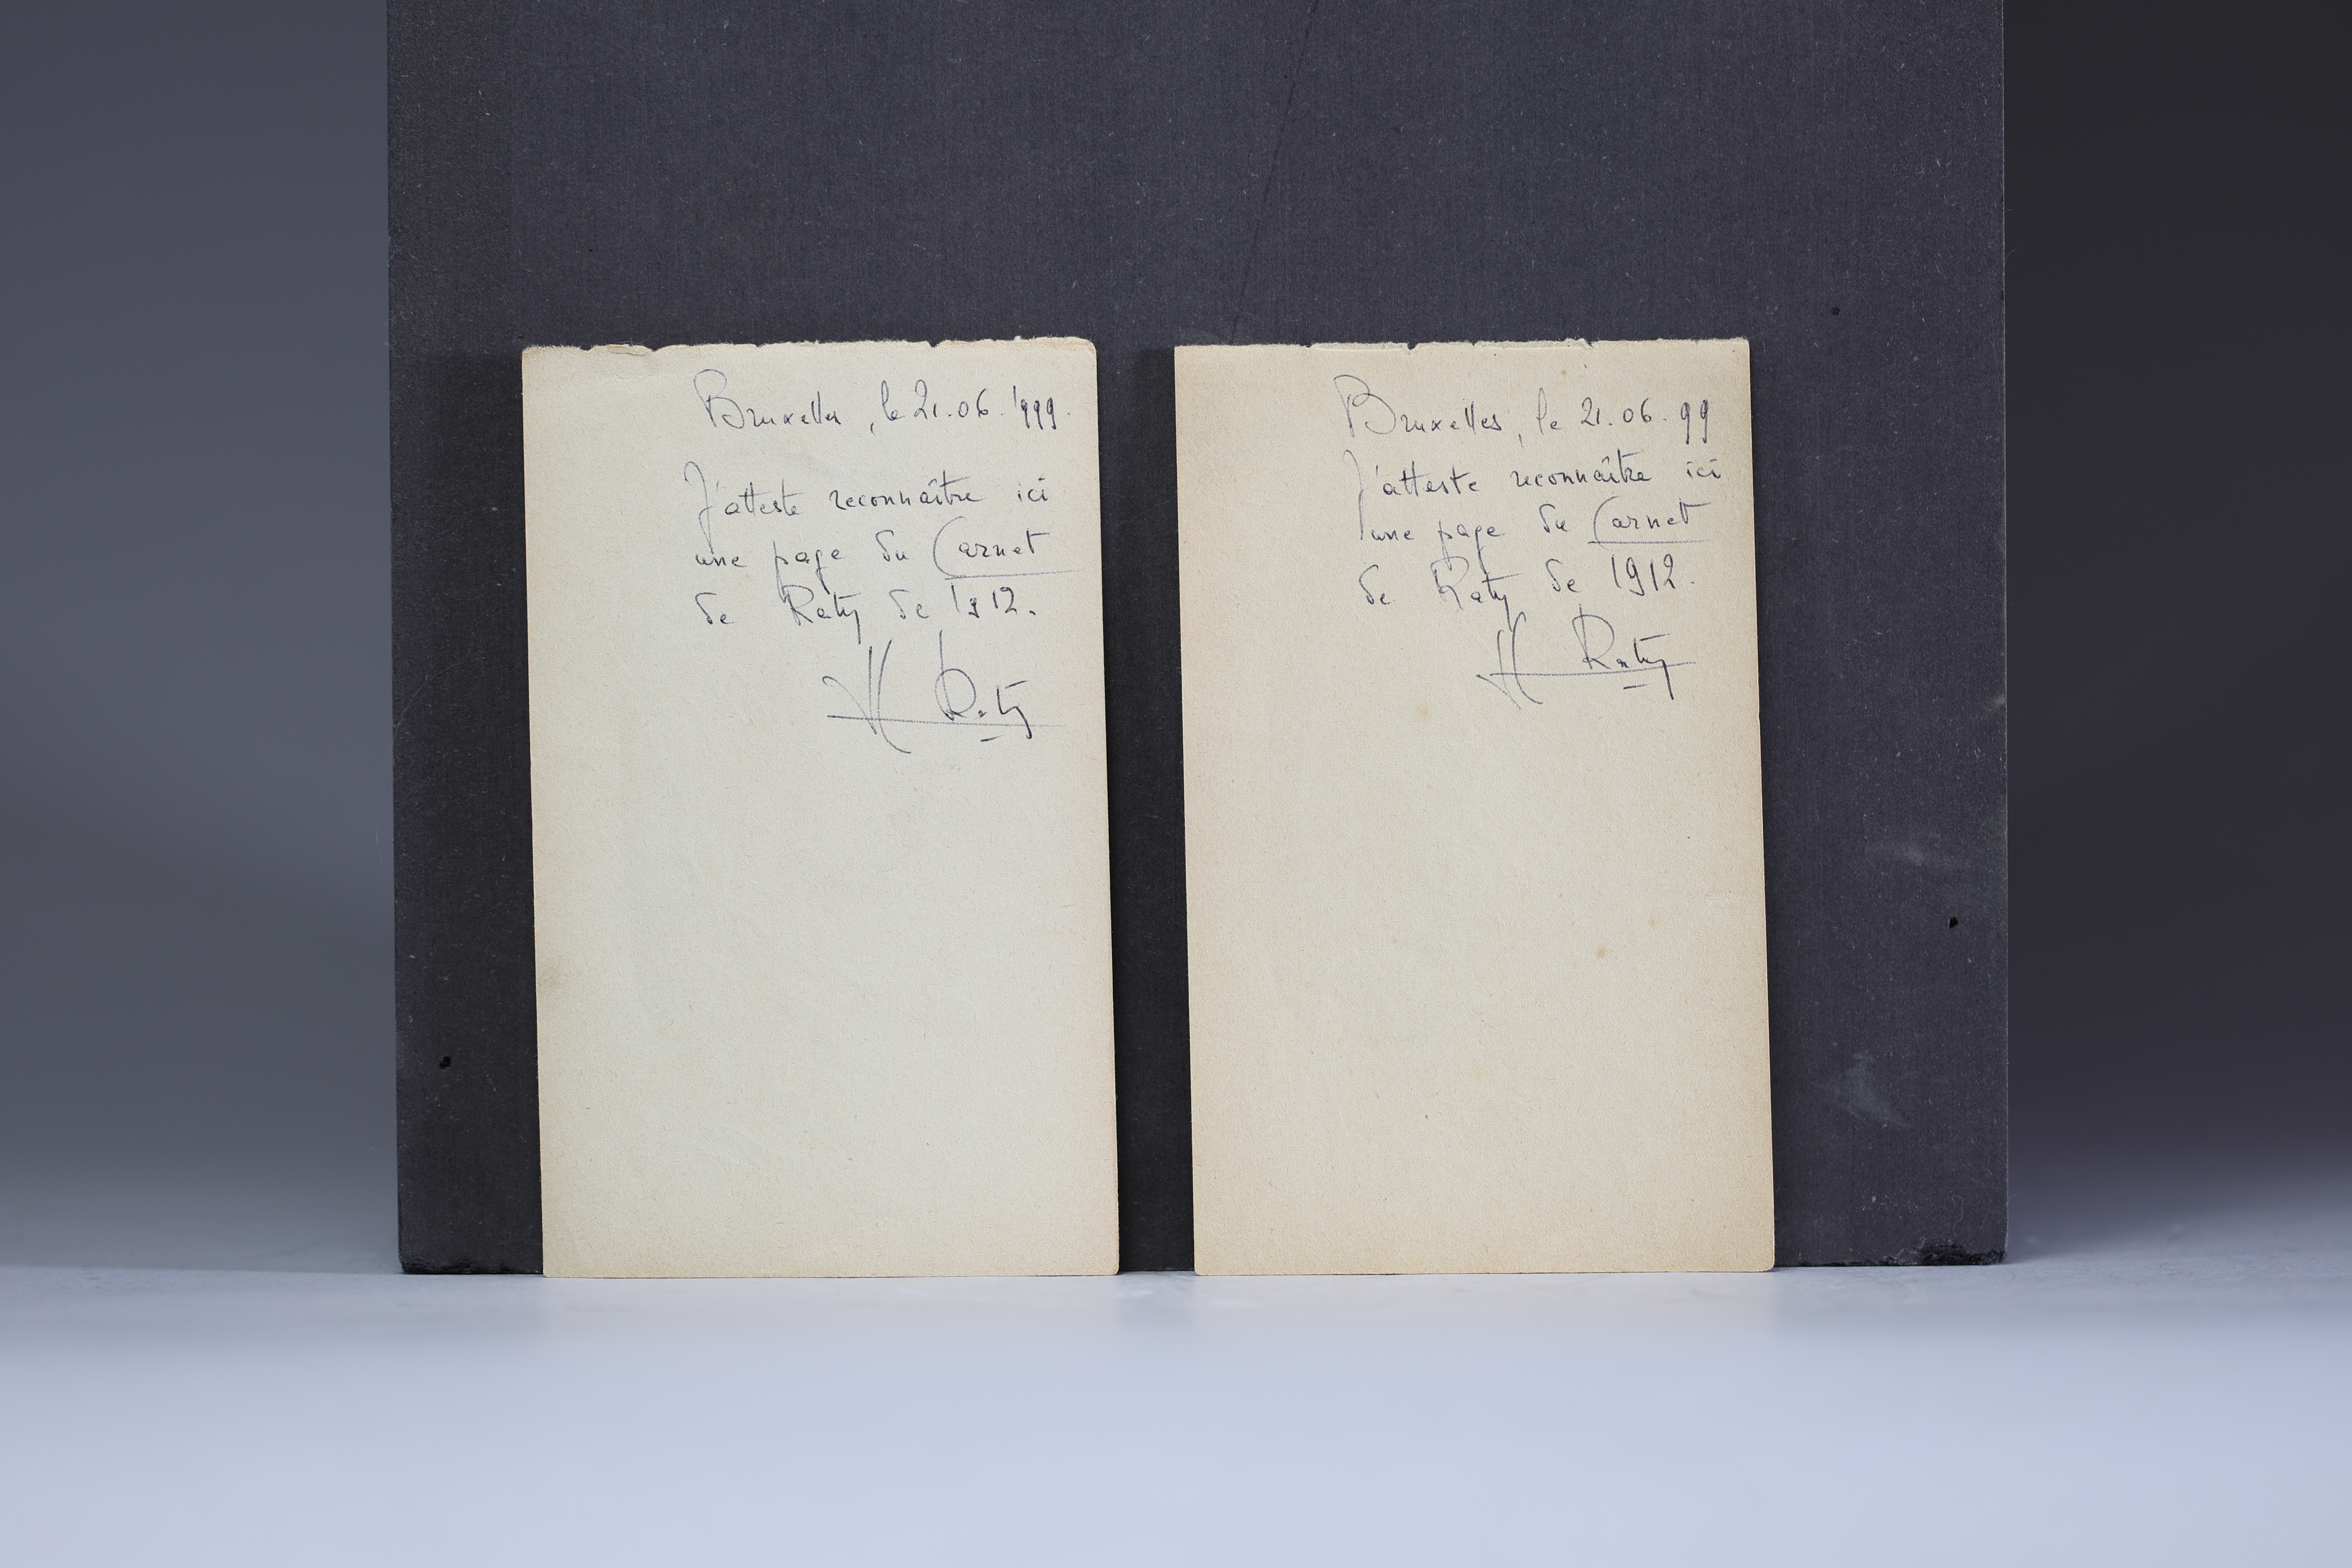 Bruxelles, le 21.06.1999.
J'atteste reconnaître ici
une page du Carnet
de Raty de 1912.
H Raty
Bruxelles, le 21.06.99
J'atteste reconnaître ici
une page du Carnet
de Raty de 1912.
H Raty